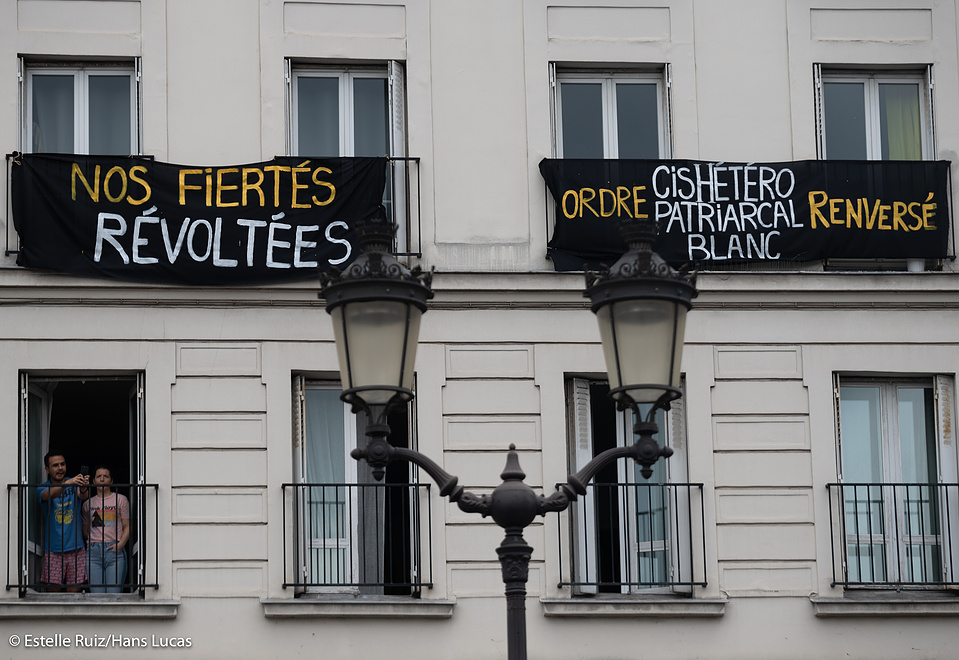 NOS FiERTÉS
RÉVOLTÉES
ORDRE
CiSHÉTÉRO
PATRiARCAL
BLANC
RENVERSÉ
© Estelle Ruiz/Hans Lucas